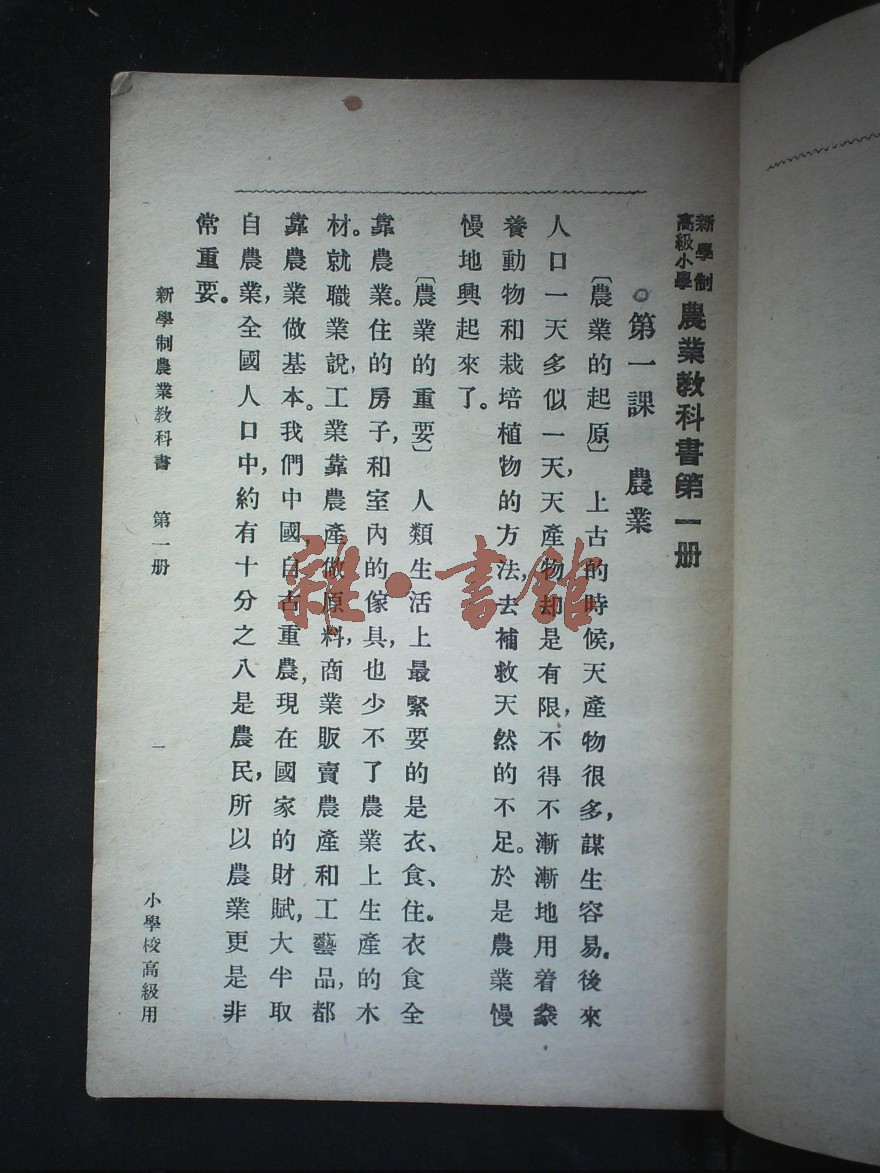 新學制
高級小學
農業教科書第一册
第一課　農業
〔農業的起原〕　上古的時候，天產物很多，謀生容易。後來
人口一天多似一天，天產物却是有限，不得不漸漸地用着豢
養動物和栽培植物的方法，去補救天然的不足。於是農業慢
慢地興起來了。
〔農業的重要〕　人類生活上最緊要的是衣、食、住。衣食全
靠農業。住的房子，和室內的傢具，也少不了農業上生產的木
材。就職業說，工業靠農產做原料，商業販賣農產和工藝品，都
靠農業做基本。我們中國自古重農，現在國家的財賦，大半取
自農業，全國人口中，約有十分之八是農民，所以農業更是非
常重要。
新學制農業教科書　第一册　一　小學校高級用
雜·書館